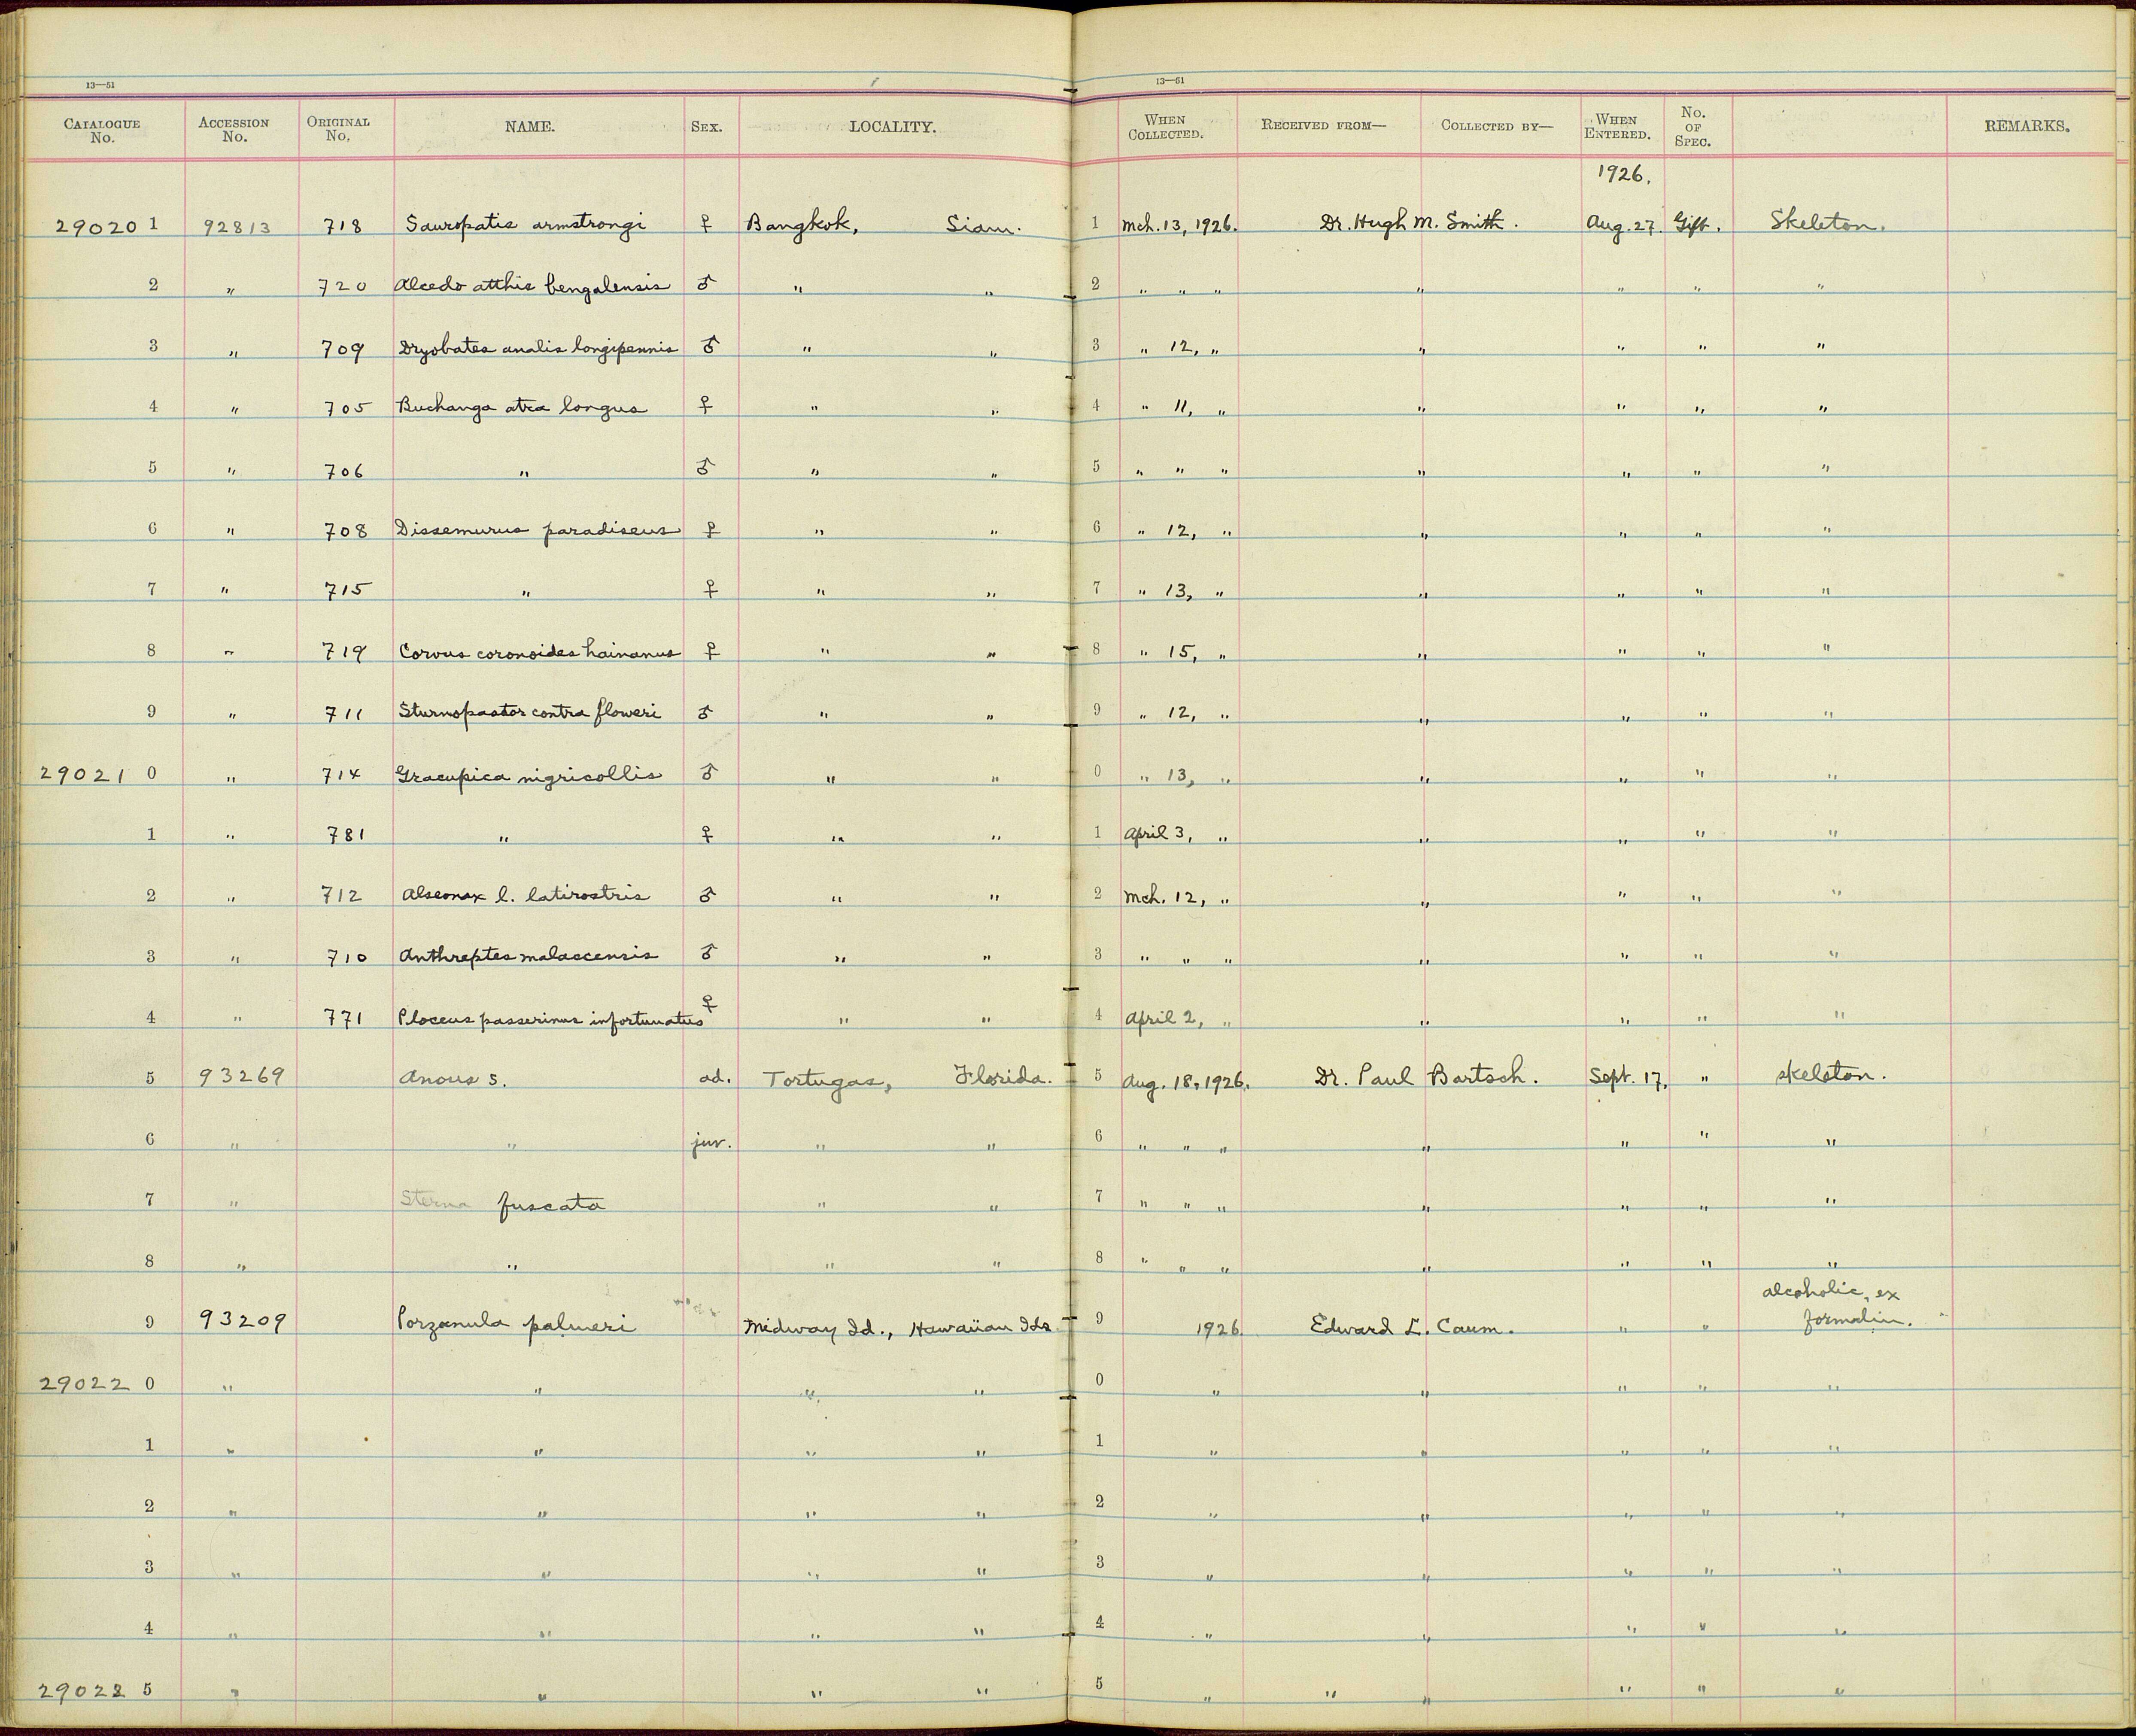 13—51 13—51
CATALOGUE No. ACCESSION No. ORIGINAL No. NAME. SEX. LOCALITY. WHEN COLLECTED. RECEIVED FROM— COLLECTED BY— WHEN ENTERED. No. OF SPEC. REMARKS.
1926.
29020 1 92813 718 Sauropatis armstrongi ♀ Bangkok, Siam. 1 Mch. 13, 1926. Dr. Hugh M. Smith. Aug. 27. Gift. Skeleton.
2 " 720 Alcedo atthis bengalensis ♂ " " 2 " " " " " " "
3 " 709 Dryobates analis longipennis ♂ " " 3 " 12, " " " " "
4 " 705 Buchanga atra longus ♀ " " 4 " 11, " " " " "
5 " 706 " ♂ " " 5 " " " " " " "
6 " 708 Dissemurus paradiseus ♀ " " 6 " 12, " " " " "
7 " 715 " ♀ " " 7 " 13, " " " " "
8 " 719 Corvus coronoides hainanus ♀ " " 8 " 15, " " " " "
9 " 711 Sturnopastor contra floweri ♂ " " 9 " 12, " " " " "
29021 0 " 714 Gracupica nigricollis ♂ " " 0 " 13, " " " " "
1 " 781 " ♀ " " 1 April 3, " " " " "
2 " 712 Alseonax l. latirostris ♂ " " 2 Mch. 12, " " " " "
3 " 710 Anthreptes malaccensis ♂ " " 3 " " " " " " "
4 " 771 Ploceus passerinus infortunatus ♀ " " 4 April 2, " " " " "
5 93269 Anous s. ad. Tortugas, Florida. 5 Aug. 18, 1926. Dr. Paul Bartsch. Sept. 17. " skeleton.
6 " " juv. " " 6 " " " " " " "
7 " Sterna fuscata " " 7 " " " " " " "
8 " " " " 8 " " " " " " "
9 93209 Porzanula palmeri Midway Id., Hawaiian Ids. 9 1926. Edward L. Caum. " " alcoholic, ex formalin.
29022 0 " " " " 0 " " " " "
1 " " " " 1 " " " " "
2 " " " " 2 " " " " "
3 " " " " 3 " " " " "
4 " " " " 4 " " " " "
29022 5 " " " " 5 " " " " " "